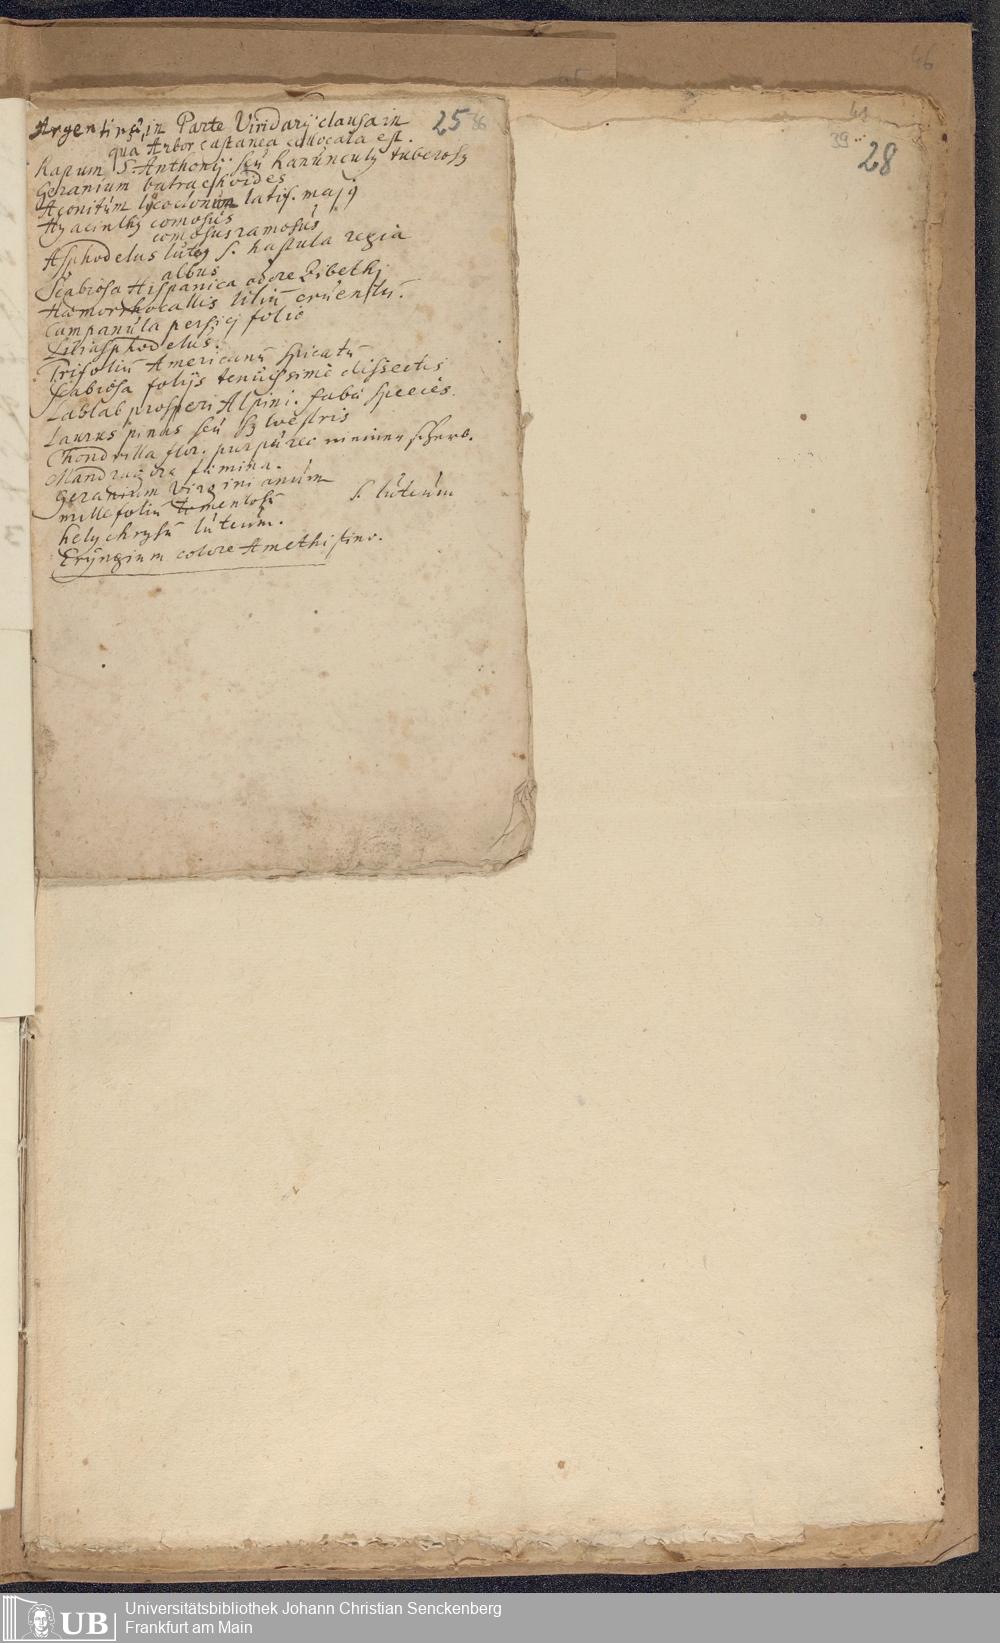 46
41
39
28
25 86
Argentinsi, in Parte Viridarij clausa in
qua Arbor castanea collocata est.
Rapum S. Anthonij seu Ranunculus tuberosus
Geranium batrachoides
Aconitum lycoctonum latif. majus
Hyacinthus comosus
comosus ramosus
Asphodelus luteus s. hastula regia
albus
Scabiosa Hispanica odore Zibethi
Hæmorrhocallis liliū cruentū.
Campanula persici folio
Liliasphodelus.
Trifoliū Americanū spicatū
Scabiosa folijs tenuissime dissectis
Lablab prosperi Alpini. fabæ species.
Laurus pinus seu sylvestris
Chondrilla flor. purpureo
Mandragora fæmina.
Geranium Virginianum
millefoliū tomentosū s. luteum
helychrysū luteum.
Eryngium colore Amethistino.
UB
Universitätsbibliothek Johann Christian Senckenberg
Frankfurt am Main